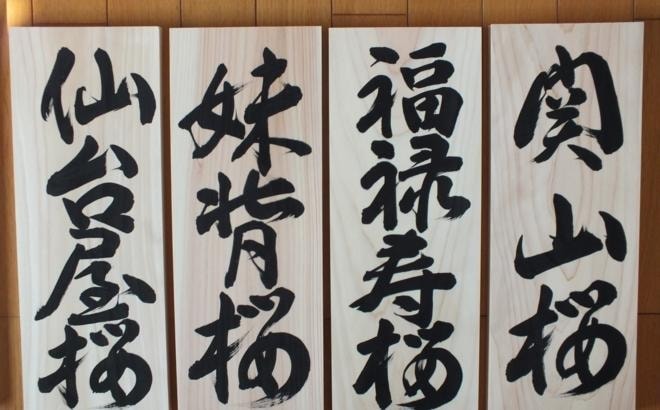 関山桜
福禄寿桜
妹背桜
仙台屋桜